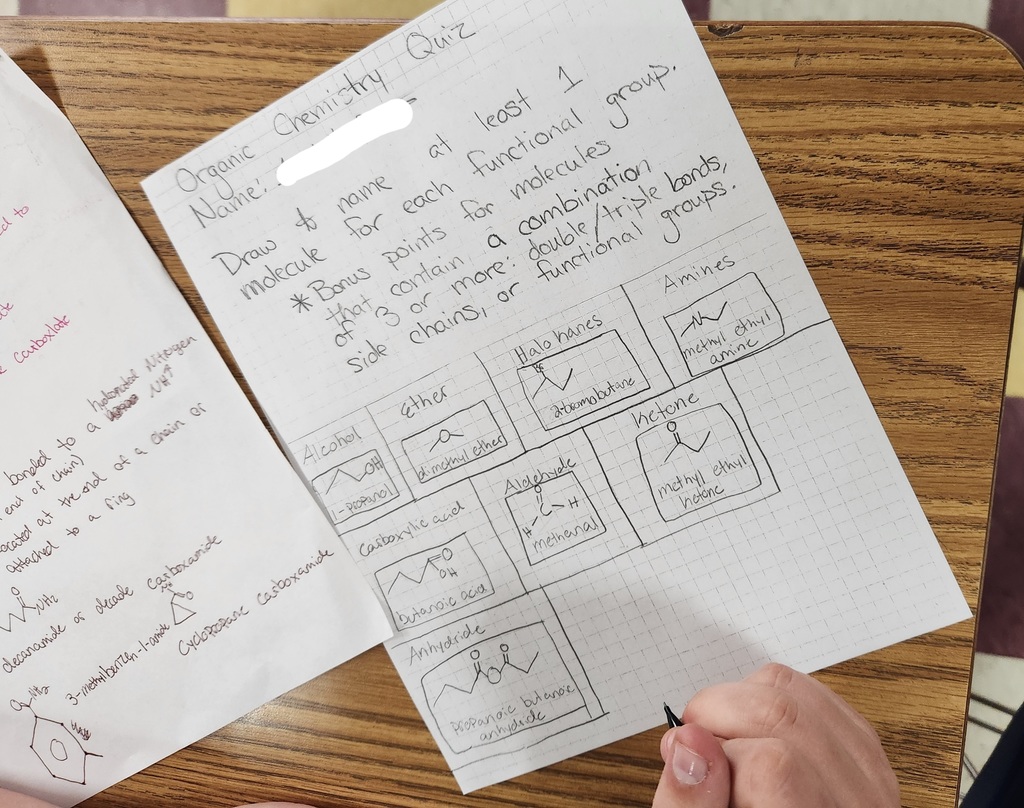 Organic Chemistry Quiz
Name:
Draw & name at least 1
molecule for each functional group.
*Bonus points for molecules
that contain a combination
of 3 or more: double/triple bonds,
side chains, or functional groups.
Alcohol
OH
1-propanol
Ether
O
dimethyl ether
Halo
Br
2-bromobutane
Amines
N
methyl ethyl
amine
Carboxylic acid
O
OH
butanoic acid
Aldehyde
O
C
H
H
methanal
Ketone
O
methyl ethyl
ketone
Anhydride
O
O
O
propanoic butanoic
anhydride
ed to
carboxlate
bonded to a
Nitrogen
end of chain)
located at the end of a chain or
attached to a ring
O
NH2
decanamide or decade carboxamide
O
3-methylbenzen-1-amide
cyclopropane carboxamide
O
NH2